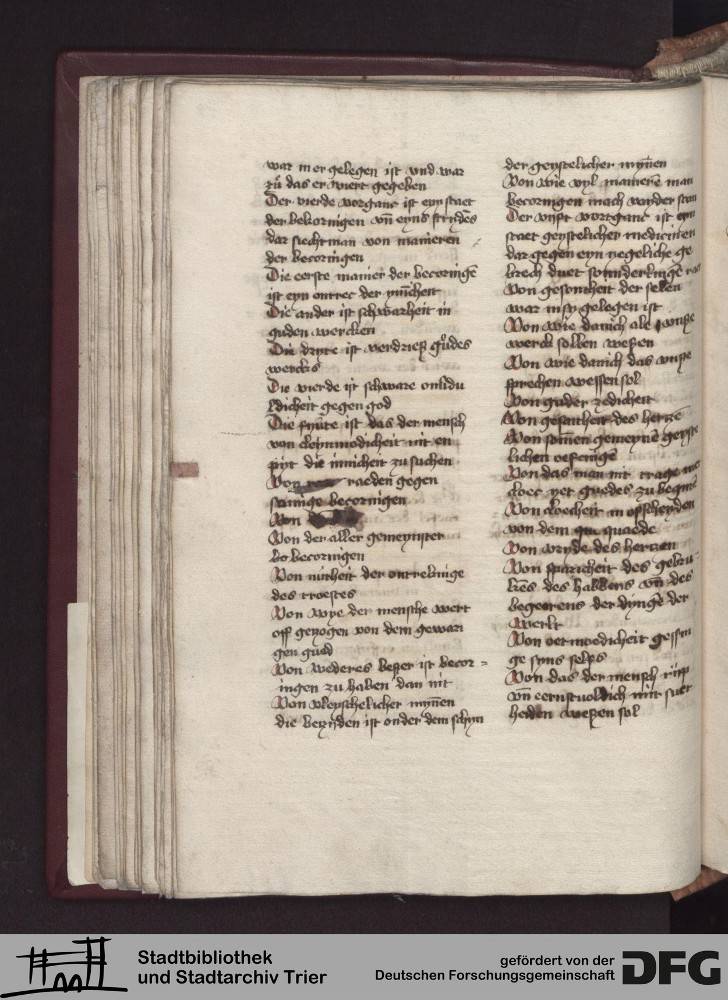 war in er gelegen ist vnd war
zů das er wert gegeben
Der vierde vorganc ist eyn staet
der bekornigen vn̄ eyns strydes
dar suecht man von manieren
der becoringen
Die eerste manier der becoringē
ist eyn ontrec der ynicheit
Die ander ist schwarheit in
guden wercken
Die dryte ist verdrieß gůdes
wercks
Die vierde ist schware onlidu
ldicheit gegen god
Die fyūte ist das der mensch
von cleynmodicheit nit en
pijt die innicheit zu suchen
Von raeden gegen
becoringen
Von
Von der aller gemeynster
becoringen
Von nutheit der ontreckinge
des troestes
Von wye der mensche wert
off gezogen von dem gewari
gen gued
Von wederes besser ist becor=
ingen zu haben dan nit
Von vleyschelicher mynen
die beryden ist onder dem schyn
der geystelicher mynēn
Von wie vyl manierē man
becoringen mach wyder staen
Der vijfte vortganc ist eyn
staet geystelicher medicinen
dar gegen eyn yegeliche ge
brech duet sonnderlingē
Von gesontheit der selen
war in sy gelegen ist
Von wie danich alle
werck sollen weßen
Von wie danich das
sprechen wessen sol
Von guder zedicheit
Von gesatheit des hertzē
Von gemeynē
lichen oefeningē
Von das man nit trage
yet guedes zu begine
Von cloecheit in offscheyden
von dem quaede
Von vryde des hertzen
Von sparicheit des gebru
kēs des habbens vn̄ des
begerens der dyngē der
werlt
Von oetmoedicheit
ge syns selffs
Von das der mensch
vn̄ mit suet
heiden weßen sol
Stadtbibliothek
und Stadtarchiv Trier
gefördert von der
Deutschen Forschungsgemeinschaft
DFG